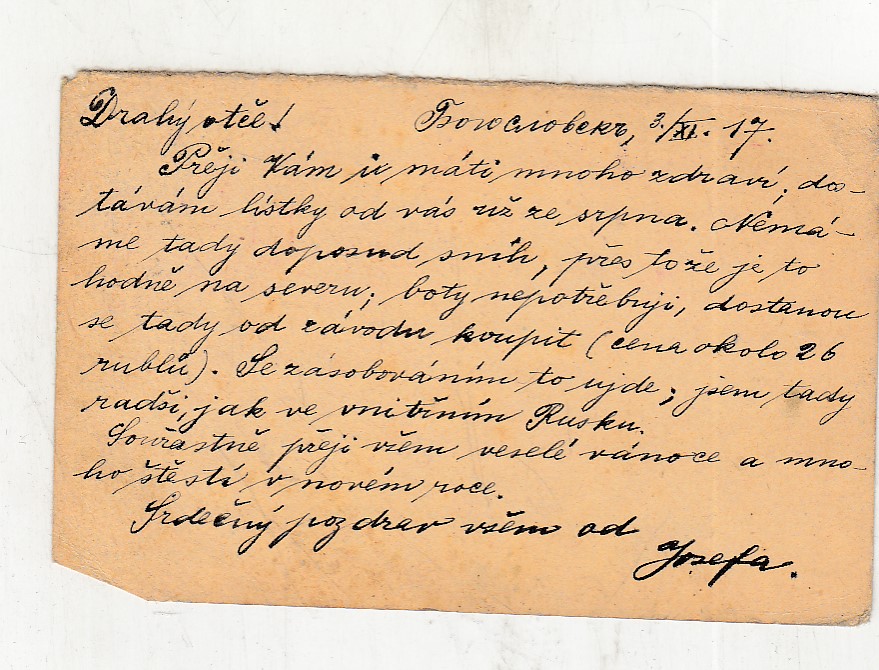 Drahý otče! Богословскъ, 3./XI. 17.
Přeji Vám i máti mnoho zdraví; dos-
távám lístky od vás už ze srpna. Nemá-
me tady doposud sníh, přes tože je to
hodně na severu; boty nepotřebuji, dostanou
se tady od závodu koupit (cena okolo 26
rublů). Se zásobováním to ujde; jsem tady
radši, jak ve vnitřním Rusku.
Součastně přeji všem veselé vánoce a mno-
ho štěstí v novém roce.
Srdečný pozdrav všem od
Josefa.